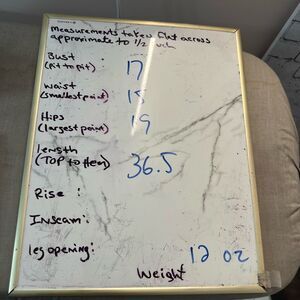 measurements taken flat across
approximate to 1/2 inch
Bust
(pit to pit) 17
waist
(smallest point) 15
Hips
(largest point) 19
length
(TOP to Hem) 36.5
Rise:
Inseam:
leg opening:
12 oz
Weight